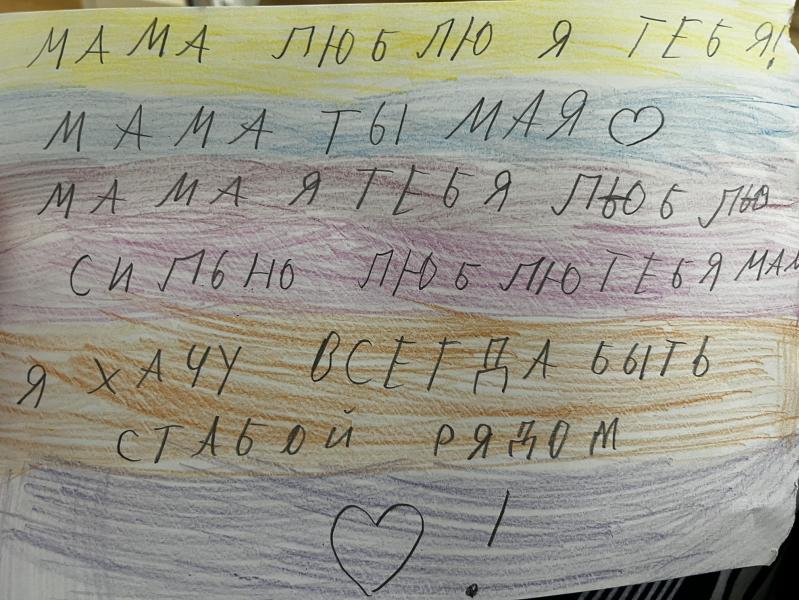 МАМА ЛЮБЛЮ Я ТЕБЯ!
МАМА ТЫ МАЯ ♡
МАМА Я ТЕБЯ ЛЮБЛЮ
СИЛЬНО ЛЮБЛЮ ТЕБЯ МАМ
Я ХАЧУ ВСЕГДА БЫТЬ
СТАБОЙ РЯДОМ
♡!